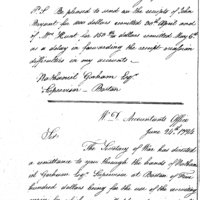 P.S. Be pleased to send on the receipts of John
Bryant for 200 dollars remitted 30th April and
of Mr Hunt for 150 dollars remitted May 6th
as a delay in forwarding the receipt occasions
difficulties in my accounts.
Nathaniel Gorham Esqr
Supervisor - Boston
W. D. Accountants Office
June 24th 1794
Sir
The Secretary of War has directed
a remittance to you through the hands of Nathan
iel Gorham Esqr Supervisor at Boston of Four
hundred dollars being for the use of the armory